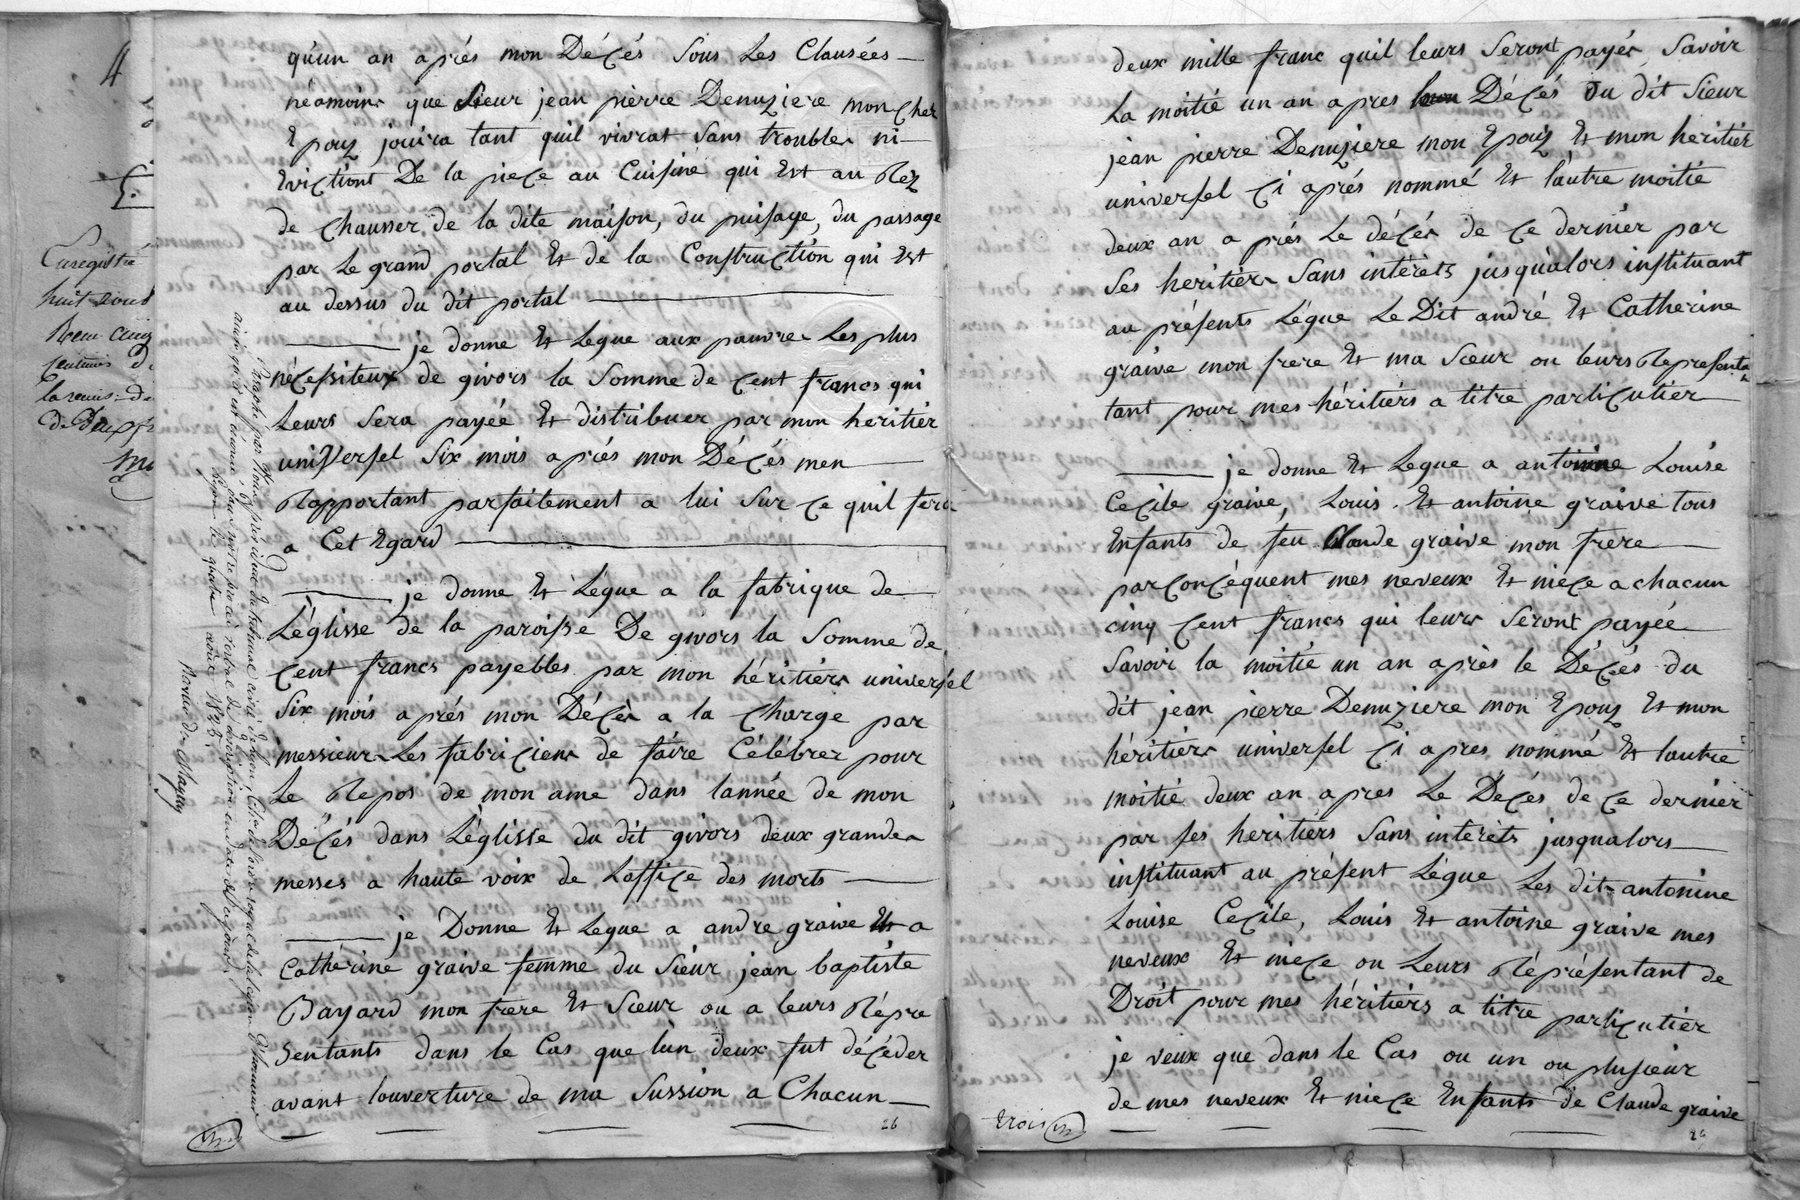 4
5.
Enregistré
huit
Reçu cinq
centimes
qu'un an aprés mon Déçés sous Les Clausées
néamoins que Sieur jean pierre Denuziere mon cher
Epouz jouira tant quil vivrat sans troubles ni
Evictiont De la pieçe au Cuisine qui Est au Rez
de chausser de la dite maison, du puisage, du passage
par Le grand portal Et de la Construction qui Est
au dessus du dit portal
je donne Et Legue aux pauvres Les plus
néçessiteux de givors la somme de Çent francs qui
Leurs sera payéé Et distribuer par mon heritiér
universel six mois aprés mon Déçés men
Rapportant parfaitement a lui sur çe quil fera
a Cet Egard
je donne Et Légue a la fabrique de
L'églisse de la paroisse De givors la somme de
Çent francs payebles par mon héritiérs universel
six mois aprés mon Déçès a la Charge par
messieurs Les fabriçiens de faire Célébrer pour
Le Repos de mon ame dans lannée de mon
Déçés dans L'églisse du dit givors deux grandes
messes a haute voix de L'offiçe des morts
je Donne Et Legue a andre graive Et a
Cathérine graive femme du Sieur jean baptiste
Bayard mon frere Et Sœur ou a leurs Répre
sentants dans le Cas que l'un deux fut déçéder
avant l'ouverture de ma Sussion a Chacun
26
Paraphé par Nous, président du tribunal civil de Lyon,
ainsi qu'il est énoncé dans notre procès verbal de description en date de ce jour.
Lyon le quatre août 1825.
deux mille franc quil leurs seront payés savoir
La moitié un an apres Déçés du dit Sieur
jean pierre Denuziere mon Epouz Et mon heritiér
universel çi aprés nommé Et l'autre moitié
deux an aprés Le déçés de çe dernier par
Ses heritiérs Sans intérets jusqu'alors instituant
au présents Légue Le Dit andré Et Catherine
graive mon frere Et ma Sœur ou leurs Represen
tant pour mes héritiérs a titre partiçutier
je donne Et Legue a antonine Louise
Ceçile graive, Louis Et antoine graive tous
Enfants de feu Claude graive mon frere
par Conçéquent mes neveux Et nieçe a chacun
cinq Çent francs qui leurs seront payée
Savoir la moitie un an après le Déçés du
dit jean pierre Denuziere mon Epouz Et mon
héritiérs universel çi apres nommé Et lautre
moitié deux an apres Le Déçés de çe derniér
par ses heritiers Sans intérèts jusqualors
instituant au présent Légue Les dit antonine
Louise Ceçile, Louis Et antoine graive mes
neveux Et nieçe ou Leurs Réprésentant de
Droit pour mes héritiérs a titre partiçutiér
je veux que dans le Cas ou un ou plusieur
de mes neveux Et nieçe Enfants de Claude graive
trois
26